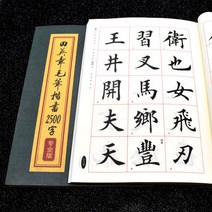 田英章毛笔楷書
2500字
专业版
王習衛
井叉也
開馬女
夫鄉飛
天豐刃